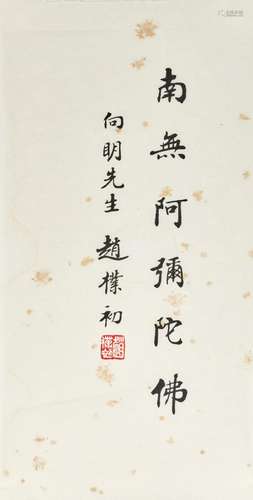 南無阿彌陀佛
向明先生 趙樸初